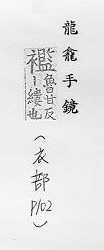 龍龕手鏡
襤
魯甘反
丨縷也
(衣部
P102)